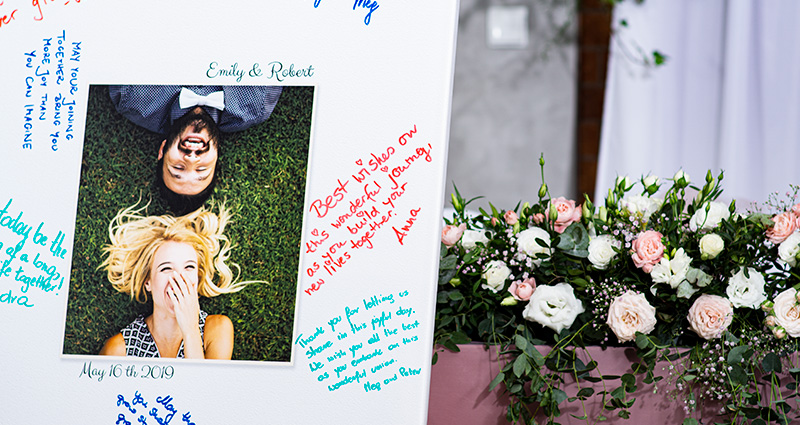 Meg
MAY YOUR JOINING
TOGETHER BRING YOU
MORE JOY THAN
YOU CAN IMAGINE
Emily & Robert
Best wishes on
this wonderful journey,
as you build your
new lives together.
Anna
today be the
of a long,
life together!
Thank you for letting us
share in this joyful day.
We wish you all the best
as you embark on this
wonderful union.
Meg and Peter
May 16th 2019